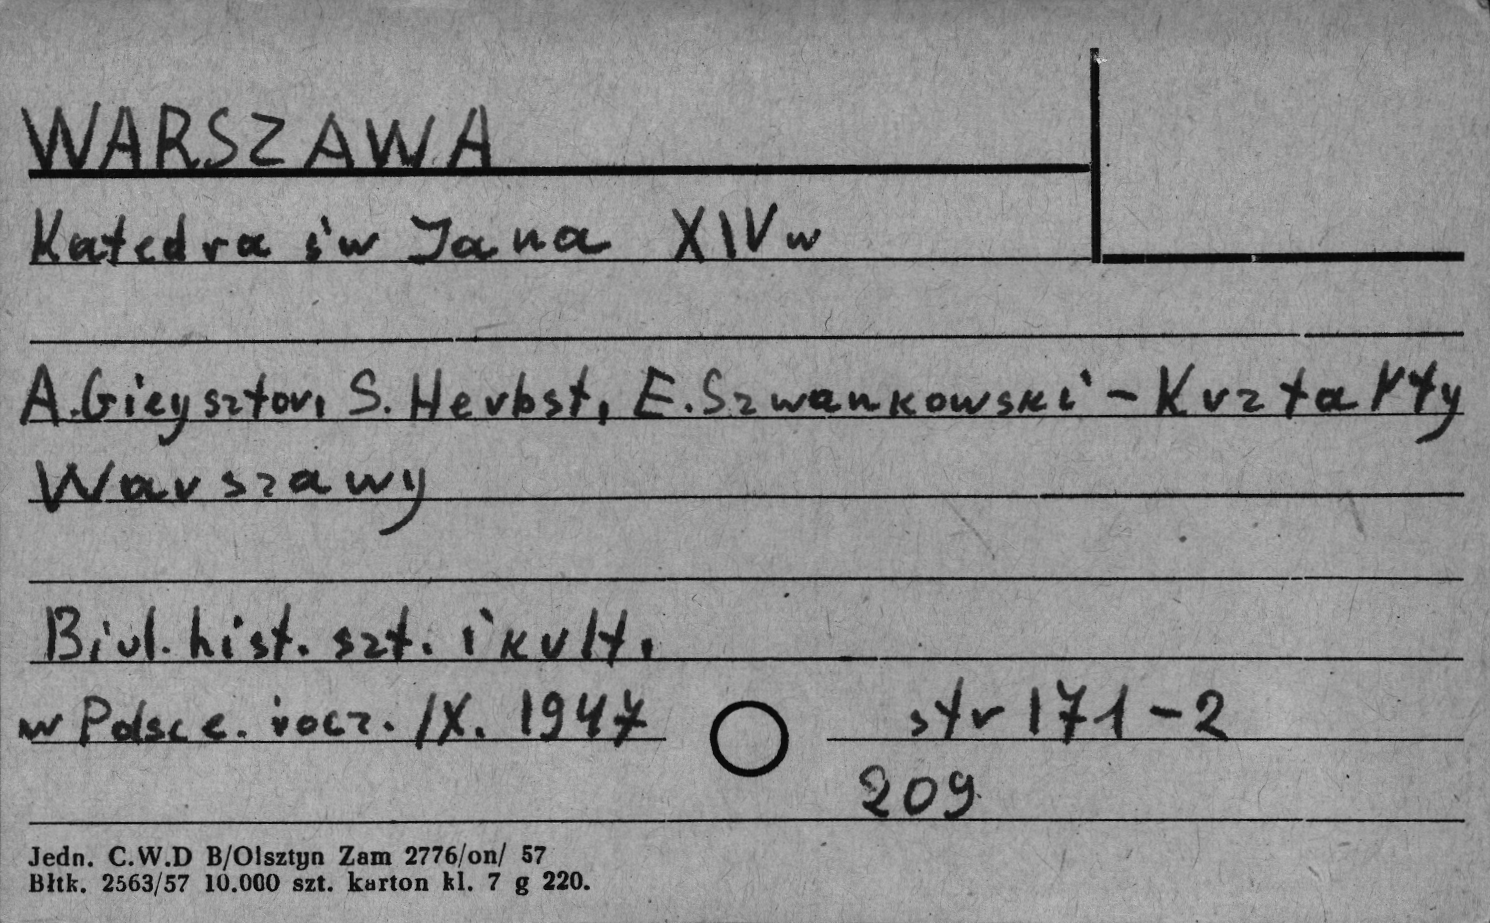 WARSZAWA
Katedra św Jana XIV w
A. Gieysztor, S. Herbst, E. Szwankowski - Kształty
Warszawy
Biul. hist. szt. i kult.
w Polsce. rocz. IX. 1947 str 171-2
209
Jedn. C.W.D B/Olsztyn Zam 2776/on/ 57
Błtk. 2563/57 10.000 szt. karton kl. 7 g 220.